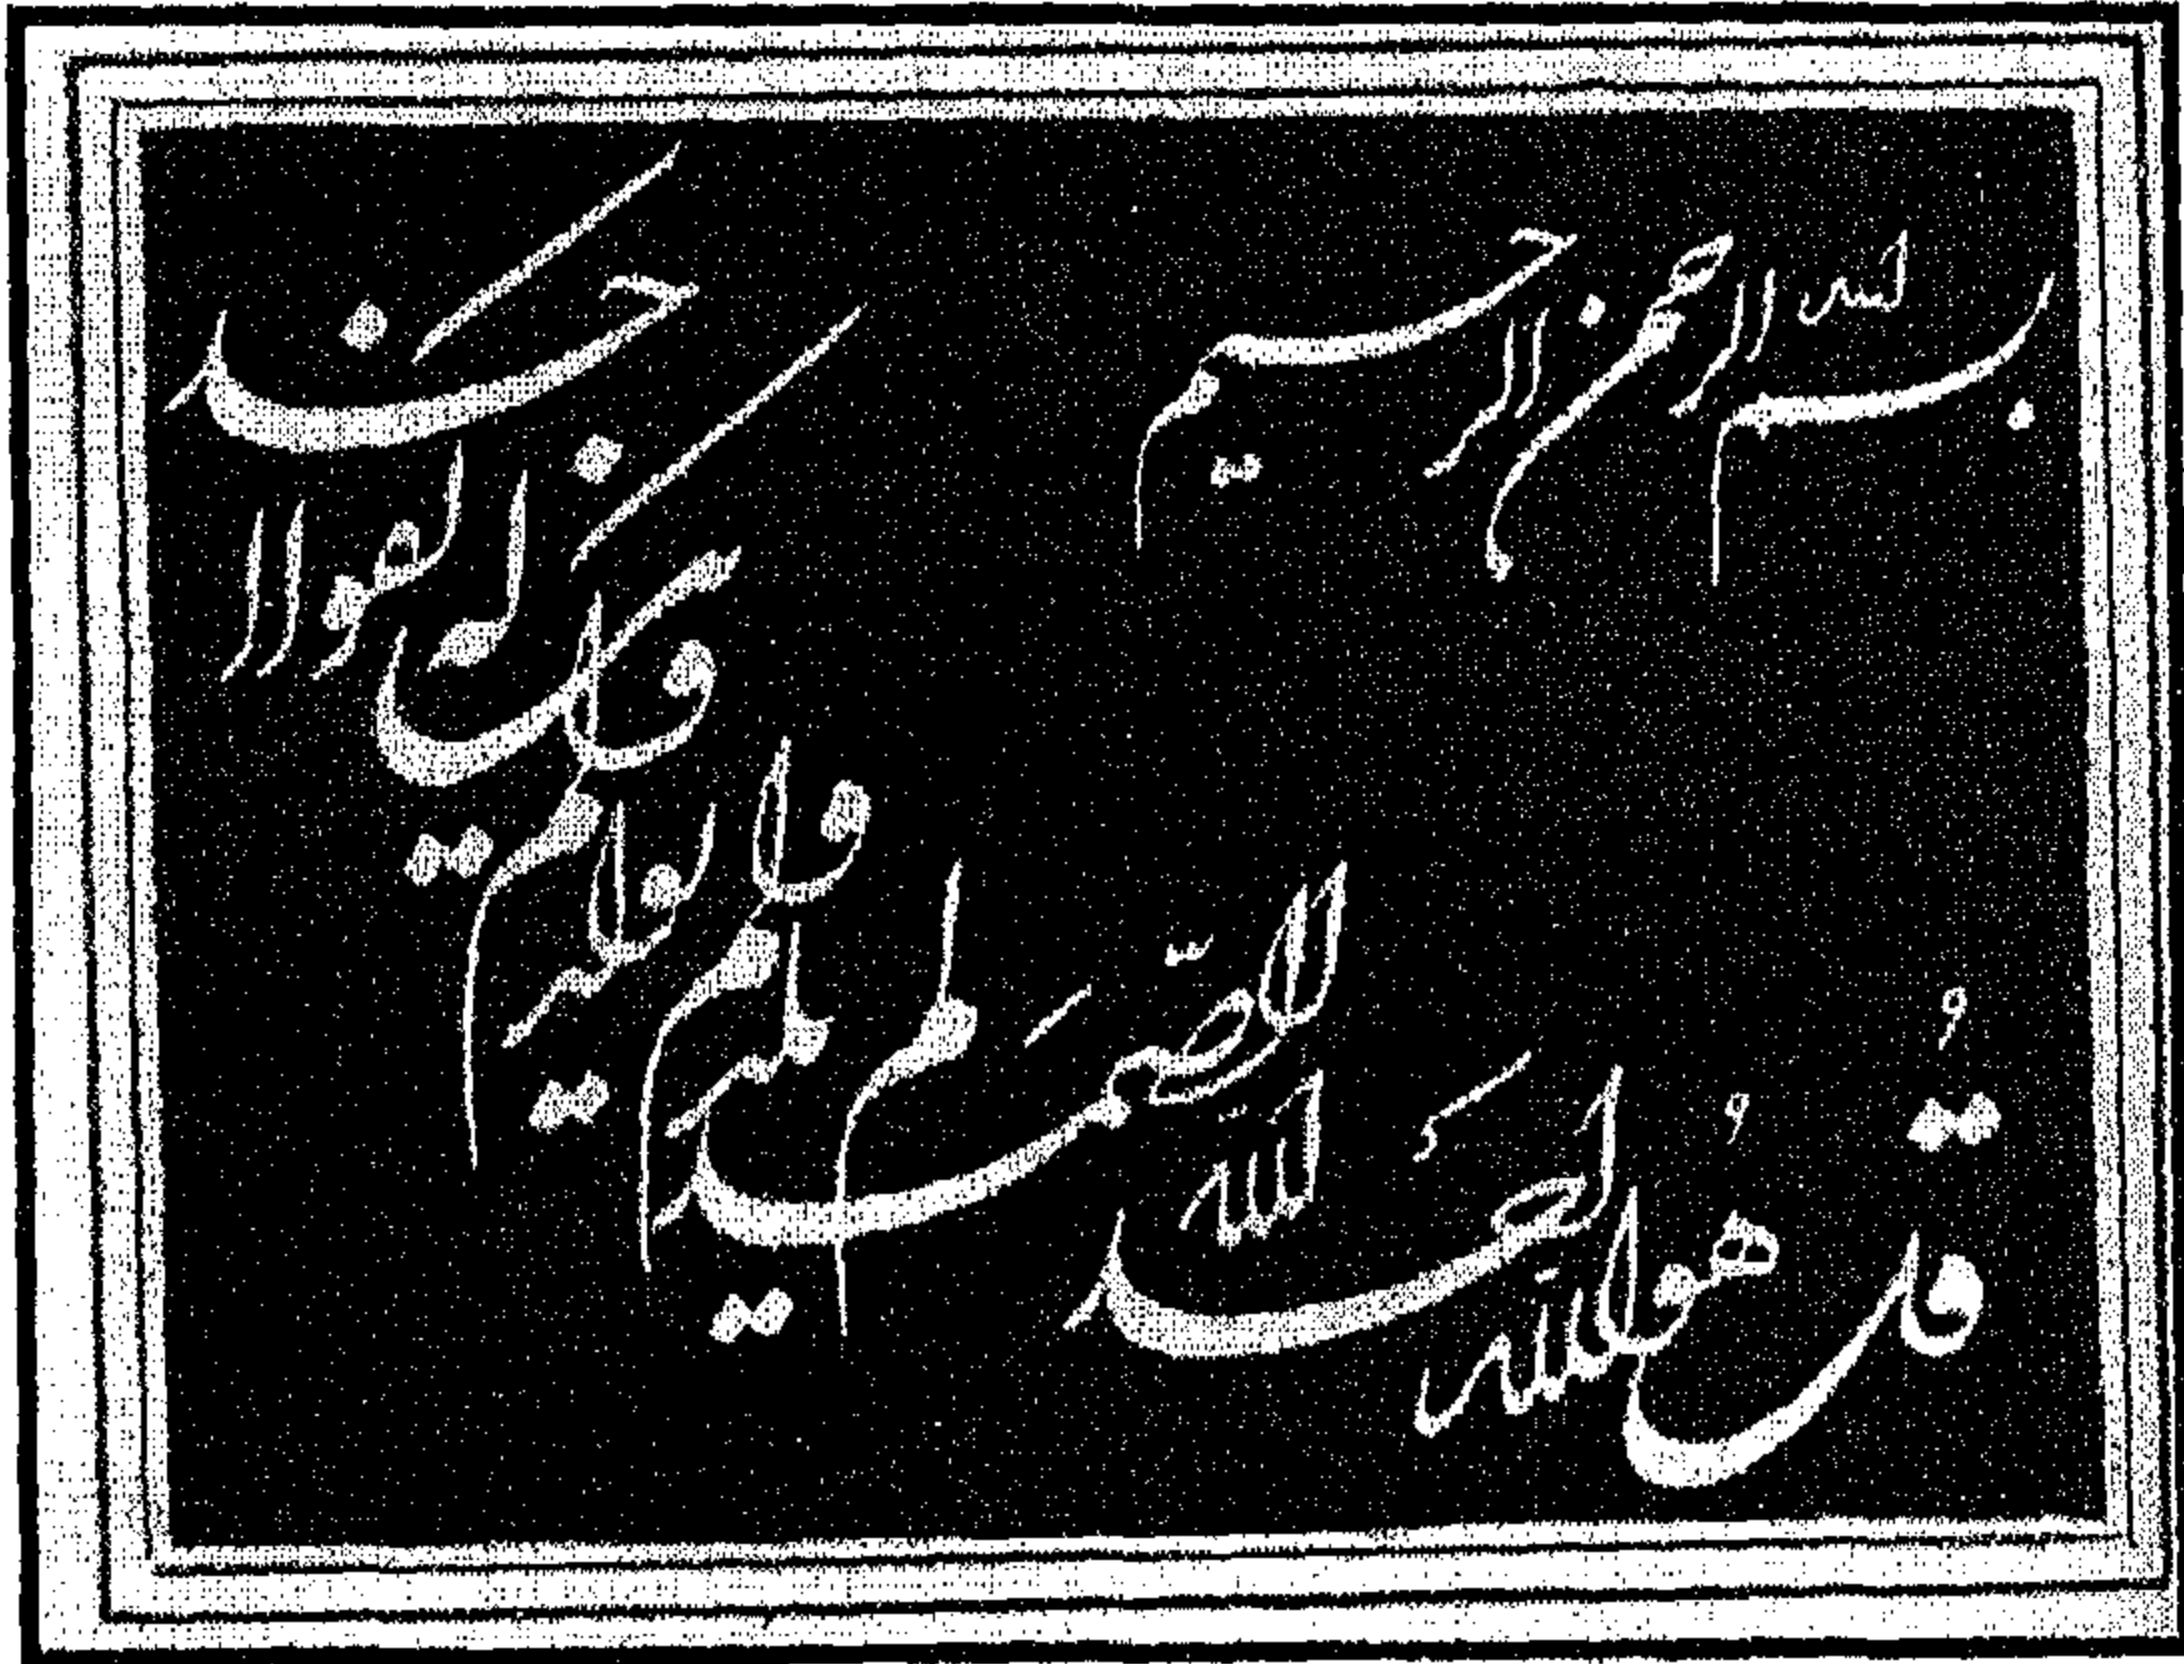 بسم الله الرحمن الرحیم
قُل هُو الله اَحَد
الله الصَّمَد
لم یلد
ولم یولد
ولم یکن له کفوا احد